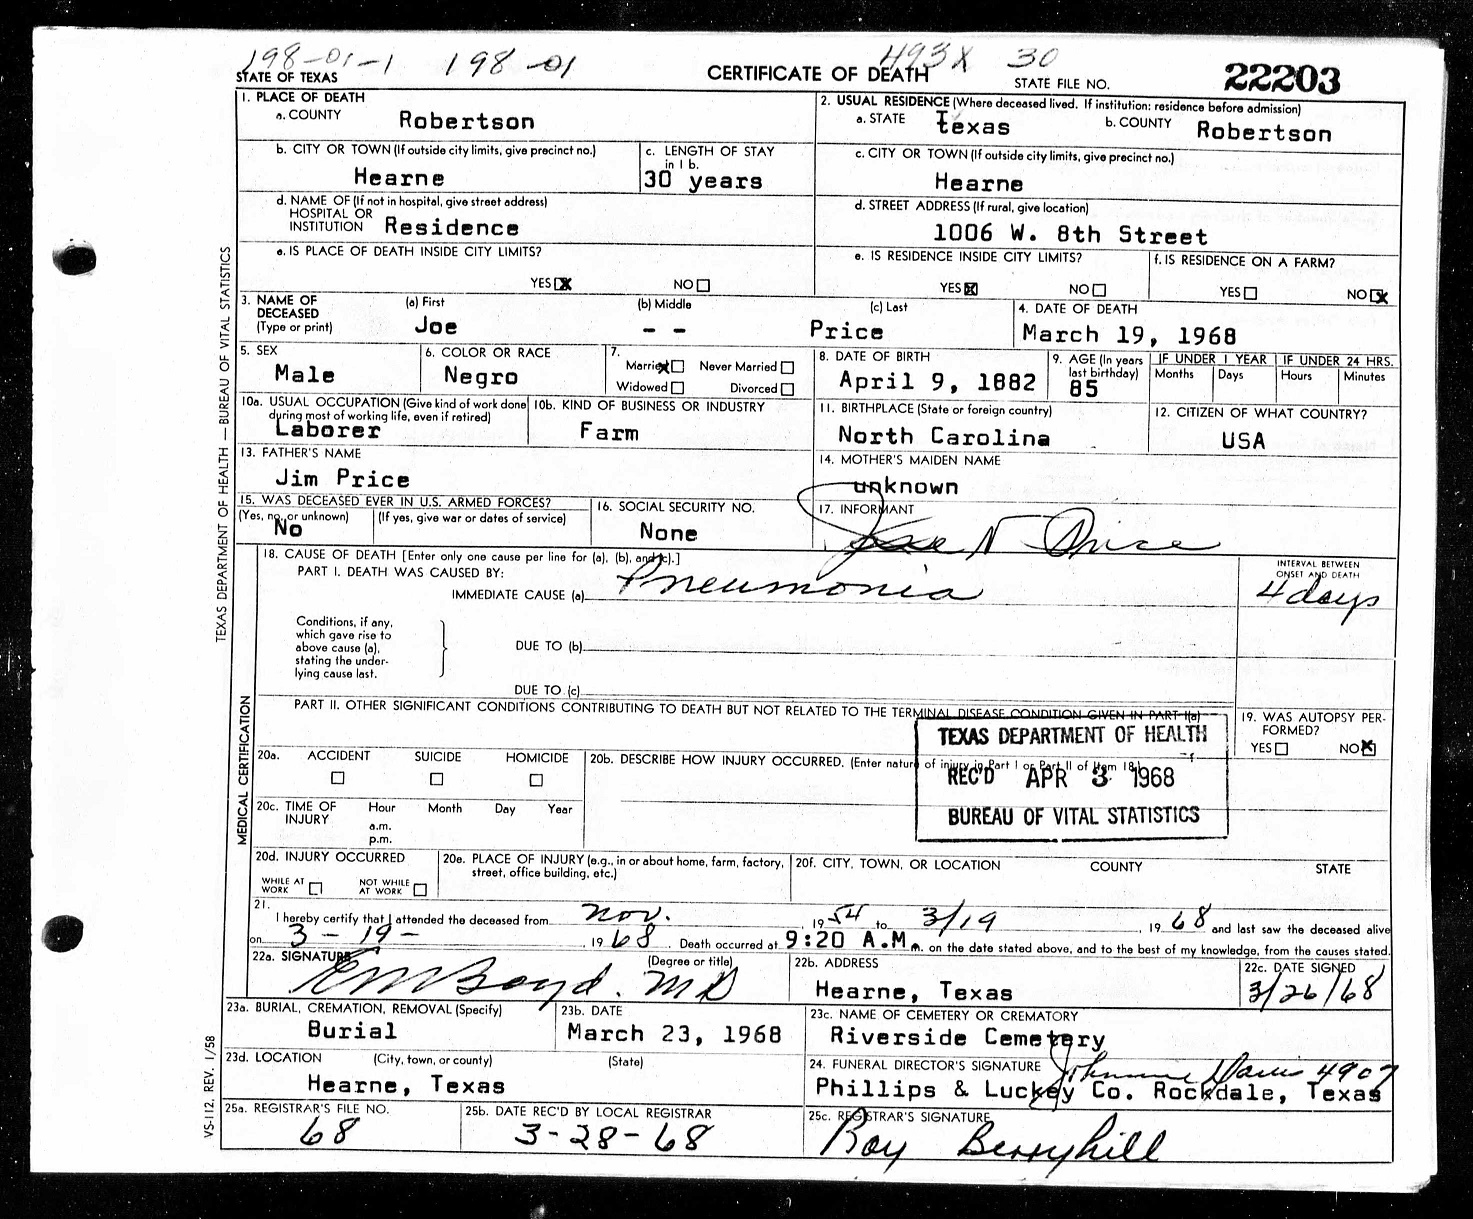 198-01-1 198-01 493X 30
STATE OF TEXAS CERTIFICATE OF DEATH STATE FILE NO. 22203
1. PLACE OF DEATH
a. COUNTY Robertson
2. USUAL RESIDENCE (Where deceased lived. If institution: residence before admission)
a. STATE Texas b. COUNTY Robertson
b. CITY OR TOWN (If outside city limits, give precinct no.)
Hearne
c. LENGTH OF STAY in 1 b.
30 years
c. CITY OR TOWN (If outside city limits, give precinct no.)
Hearne
d. NAME OF (If not in hospital, give street address)
HOSPITAL OR
INSTITUTION Residence
d. STREET ADDRESS (If rural, give location)
1006 W. 8th Street
e. IS PLACE OF DEATH INSIDE CITY LIMITS?
YES X NO
e. IS RESIDENCE INSIDE CITY LIMITS?
YES X NO
f. IS RESIDENCE ON A FARM?
YES NO X
3. NAME OF DECEASED (Type or print)
(a) First (b) Middle (c) Last
Joe - - Price
4. DATE OF DEATH
March 19, 1968
5. SEX
Male
6. COLOR OR RACE
Negro
7.
Married X Never Married
Widowed Divorced
8. DATE OF BIRTH
April 9, 1882
9. AGE (In years last birthday)
85
IF UNDER 1 YEAR IF UNDER 24 HRS.
Months Days Hours Minutes
10a. USUAL OCCUPATION (Give kind of work done during most of working life, even if retired)
Laborer
10b. KIND OF BUSINESS OR INDUSTRY
Farm
11. BIRTHPLACE (State or foreign country)
North Carolina
12. CITIZEN OF WHAT COUNTRY?
USA
13. FATHER'S NAME
Jim Price
14. MOTHER'S MAIDEN NAME
unknown
15. WAS DECEASED EVER IN U.S. ARMED FORCES?
(Yes, no, or unknown) (If yes, give war or dates of service)
No
16. SOCIAL SECURITY NO.
None
17. INFORMANT
Price
18. CAUSE OF DEATH [Enter only one cause per line for (a), (b), and (c).]
PART I. DEATH WAS CAUSED BY:
IMMEDIATE CAUSE (a) Pneumonia
INTERVAL BETWEEN
ONSET AND DEATH
4 days
Conditions, if any,
which gave rise to
above cause (a),
stating the under-
lying cause last.
DUE TO (b)
DUE TO (c)
PART II. OTHER SIGNIFICANT CONDITIONS CONTRIBUTING TO DEATH BUT NOT RELATED TO THE TERMINAL DISEASE CONDITION GIVEN IN PART I(a)
19. WAS AUTOPSY PER-
FORMED?
YES NO X
TEXAS DEPARTMENT OF HEALTH
REC'D APR 3 1968
BUREAU OF VITAL STATISTICS
20a. ACCIDENT SUICIDE HOMICIDE
20b. DESCRIBE HOW INJURY OCCURRED. (Enter nature of injury in Part I or Part II of Item 18.)
20c. TIME OF INJURY Hour Month Day Year
a.m.
p.m.
20d. INJURY OCCURRED
WHILE AT WORK NOT WHILE AT WORK
20e. PLACE OF INJURY (e.g., in or about home, farm, factory, street, office building, etc.)
20f. CITY, TOWN, OR LOCATION COUNTY STATE
21.
I hereby certify that I attended the deceased from Nov. , 1954 to 3/19 , 1968 and last saw the deceased alive
on 3-19- , 1968. Death occurred at 9:20 A.M. on the date stated above, and to the best of my knowledge, from the causes stated.
22a. SIGNATURE (Degree or title)
EM Boyd. MD
22b. ADDRESS
Hearne, Texas
22c. DATE SIGNED
3/26/68
23a. BURIAL, CREMATION, REMOVAL (Specify)
Burial
23b. DATE
March 23, 1968
23c. NAME OF CEMETERY OR CREMATORY
Riverside Cemetery
23d. LOCATION (City, town, or county) (State)
Hearne, Texas
24. FUNERAL DIRECTOR'S SIGNATURE Johnnie Davis 4907
Phillips & Luckey Co. Rockdale, Texas
25a. REGISTRAR'S FILE NO.
68
25b. DATE REC'D BY LOCAL REGISTRAR
3-28-68
25c. REGISTRAR'S SIGNATURE
Roy Berryhill
TEXAS DEPARTMENT OF HEALTH — BUREAU OF VITAL STATISTICS
MEDICAL CERTIFICATION
VS-112, REV. 1/58